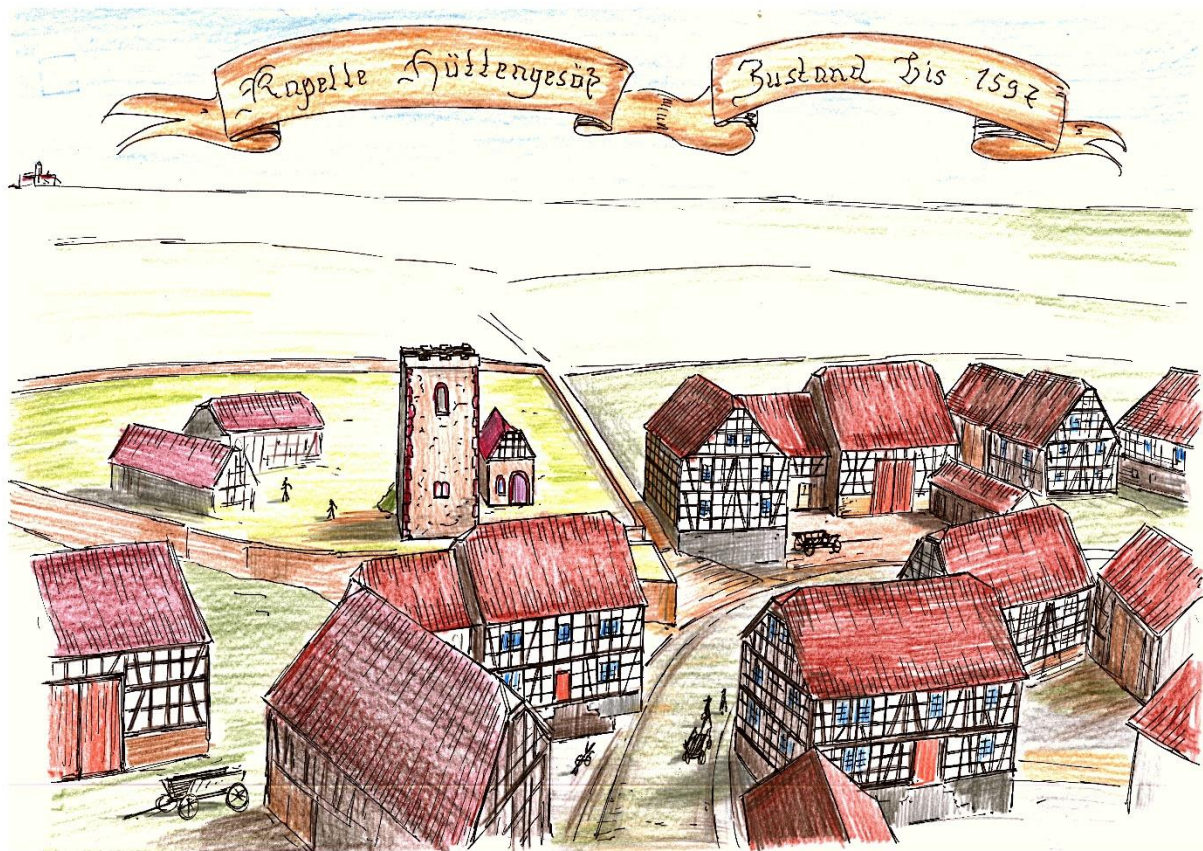 Kapelle Hüttengesäß
Zustand bis 1597